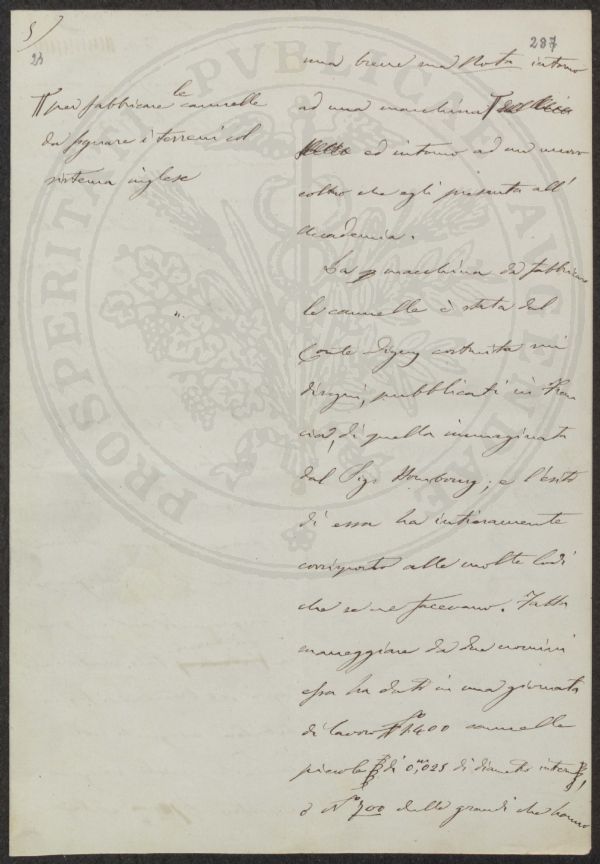 5)
23
287
una breve sua Nota intorno
ad una macchina ¶
ed intorno ad un nuovo
coltro che egli presenta all'
Accademia.
La macchina da fabbricare
le cannelle è stata dal
Conte Digny costruita sui
disegni, pubblicati in Fran
cia, di quella immaginata
dal Sigr ; e l'esito
di essa ha intieramente
corrisposto alle molte lodi
che se ne facevano. Fatta
maneggiare da due uomini
essa ha dato in una giornata
di lavoro No 1400 cannelle
piccole di 0,m025 di diametro interno,
o No 700 delle grandi che hanno
¶ per fabbricare le cannelle
da fognare i terreni col
sistema inglese
PROSPERITATI PVBLICAE AVGENDAE